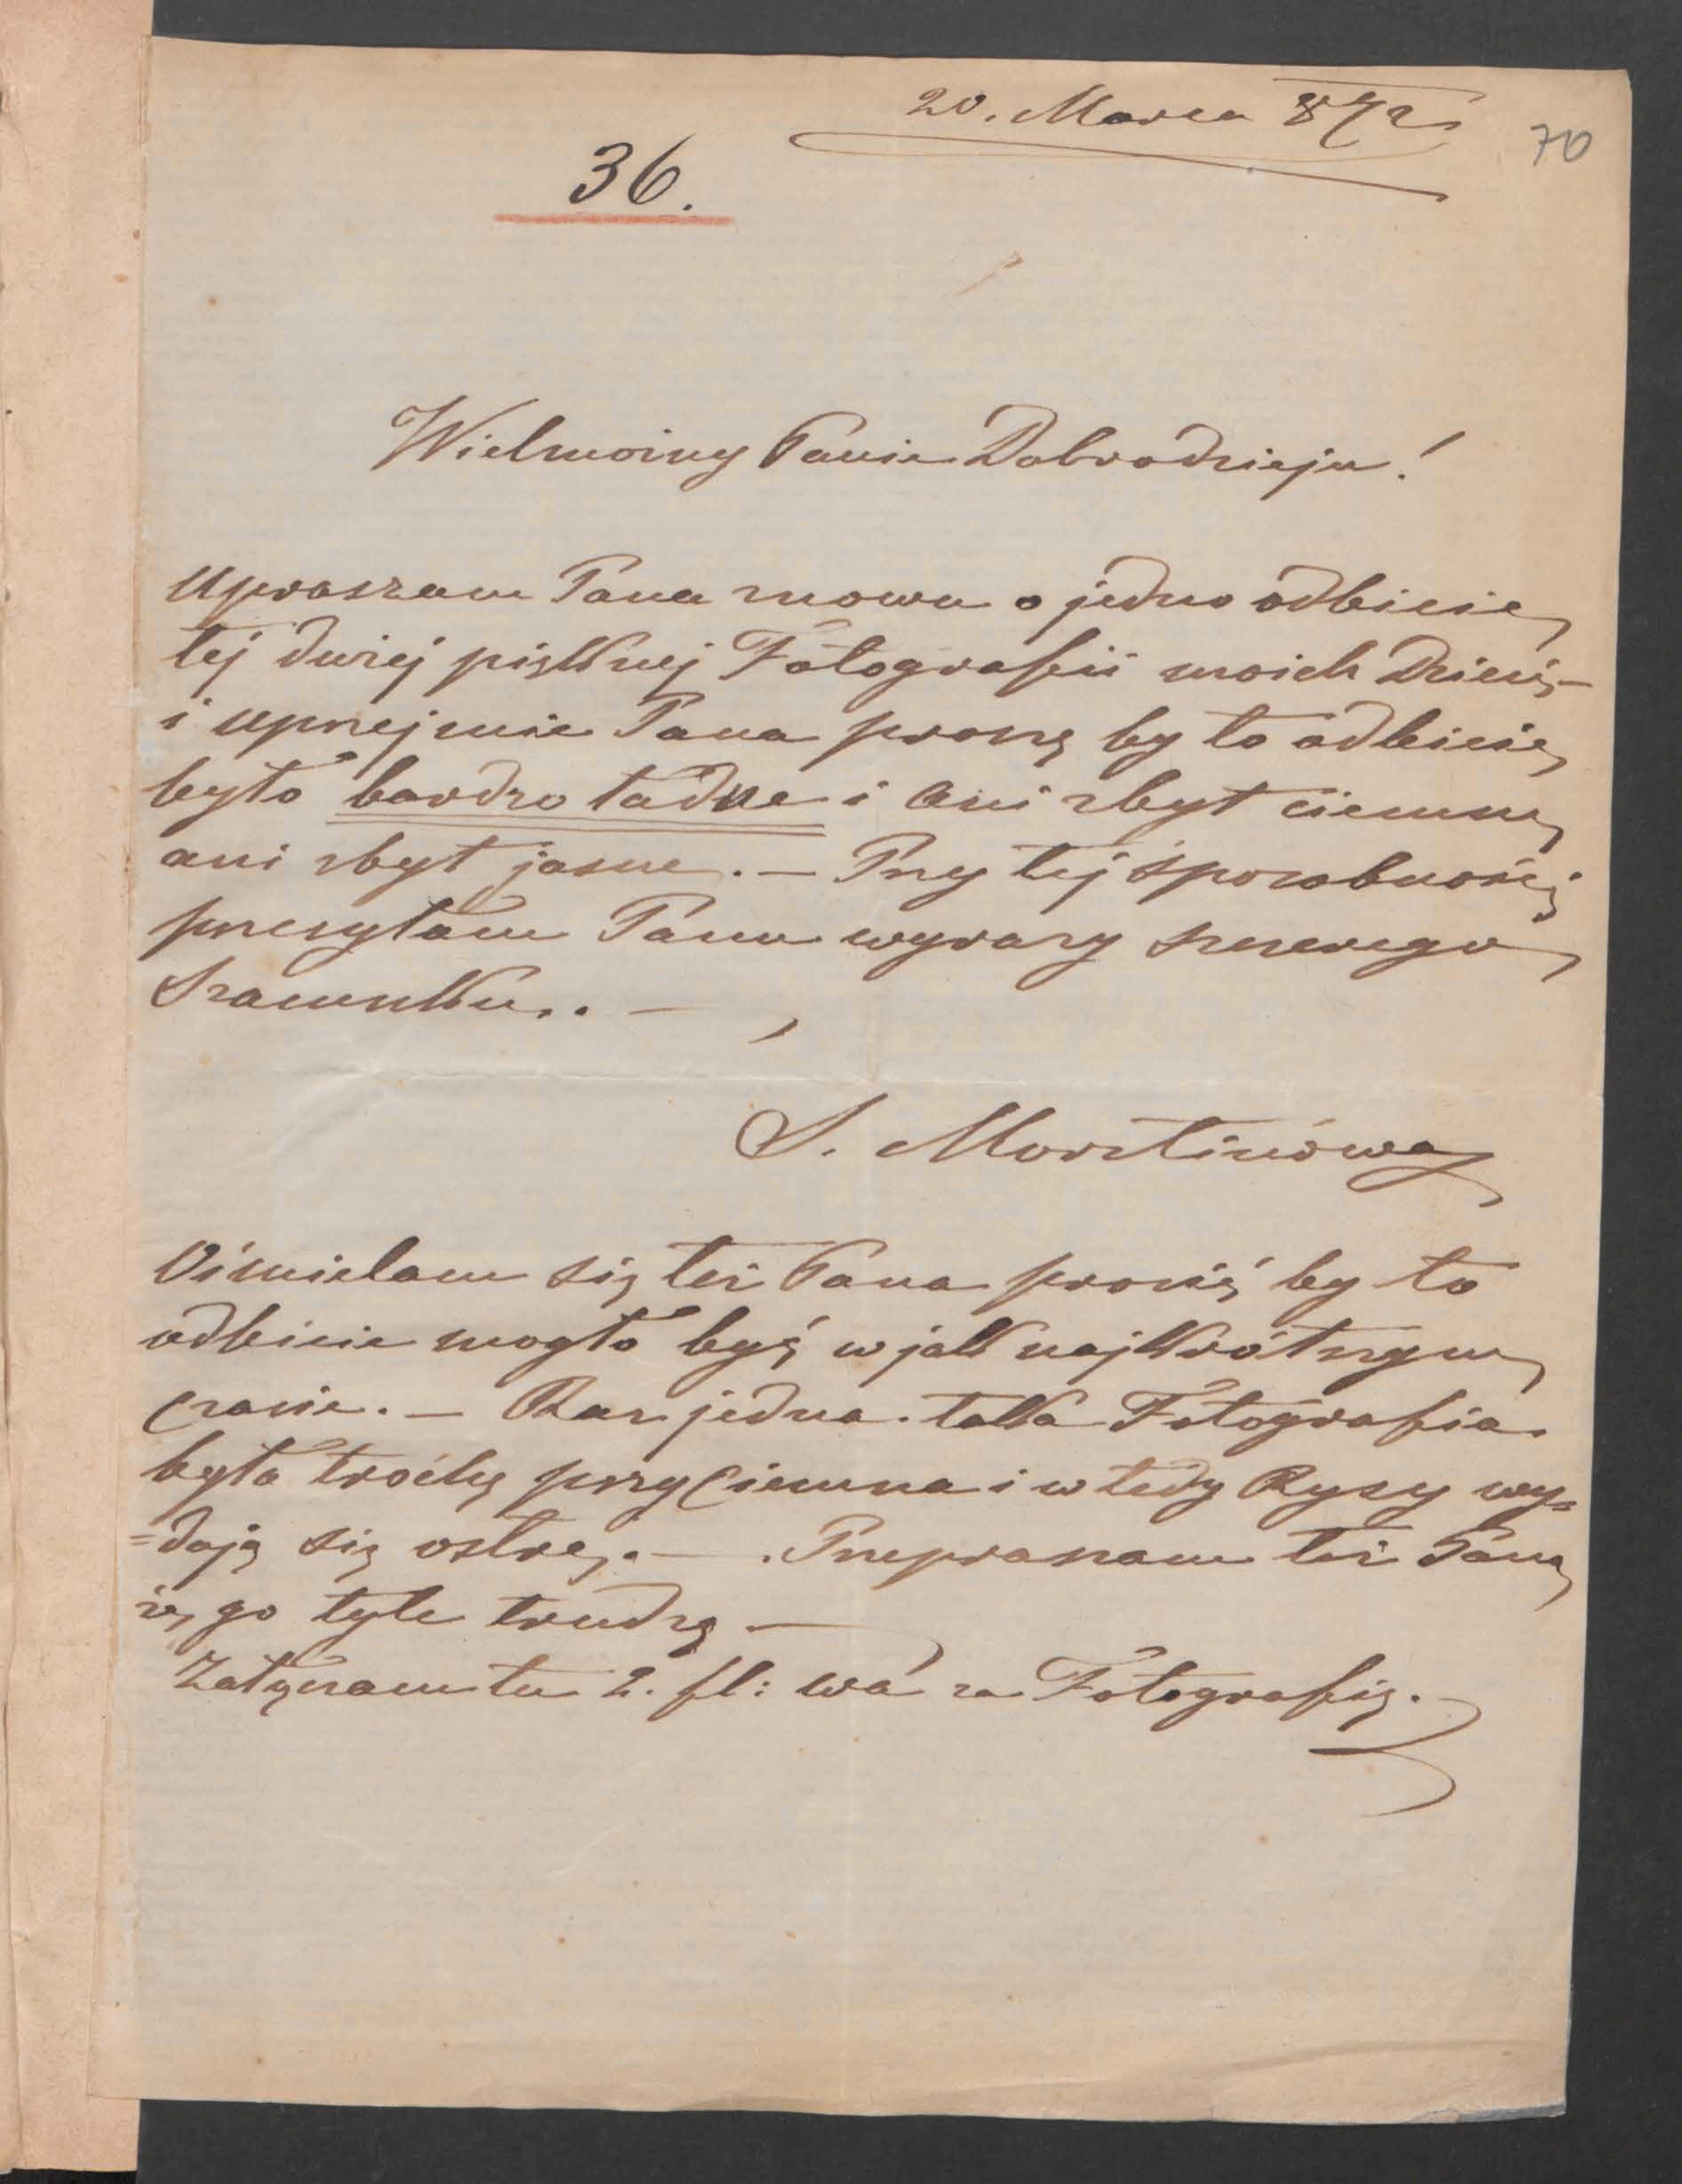 20. Marca 872
70
36.
Wielmożny Panie Dobrodzieju!
Upraszam Pana znowu o jedno odbicie
tej dużej pięknej Fotografii moich Dzieci,–
i uprzejmie Pana proszę by to odbicie
było bardzo ładne i ani zbyt ciemne
ani zbyt jasne. – Przy tej sposobności
przesyłam Panu wyrazy szczerego
Szacunku.. –
S. Morstinowa
Ośmielam się też Pana prosić by to
odbicie mogło być w jak najkrótszym
czasie. – Raz jedna taka Fotografia
była trochę przyciemna i wtedy Rysy wy=
=dają się ostre. – Przepraszam też Pana
że go tyle trudzę –
Załączam tu 2. fl: wa za Fotografię.